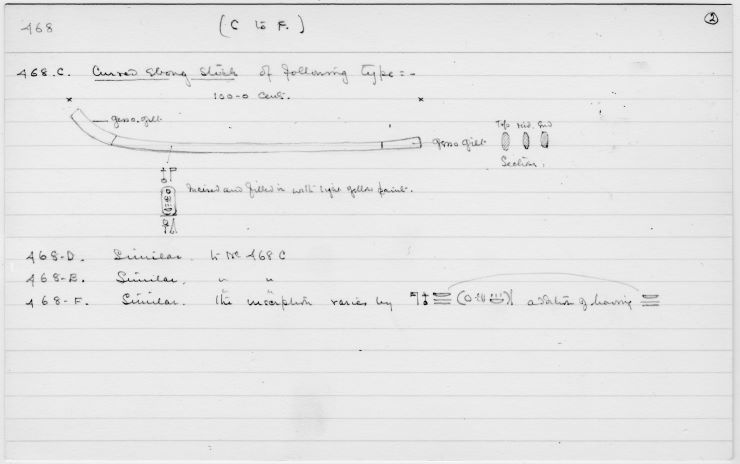 468 (C to F.) 2
468.C. Curved ebony stick of following type:-
100-0 Cent.
gesso-gilt
gesso gilt Top Mid. End
Section.
Incised and filled in with light yellow paint.
468-D. Similar. to No 468 C
468-E. Similar. " "
468-F. Similar. The inscription varies by addition of having